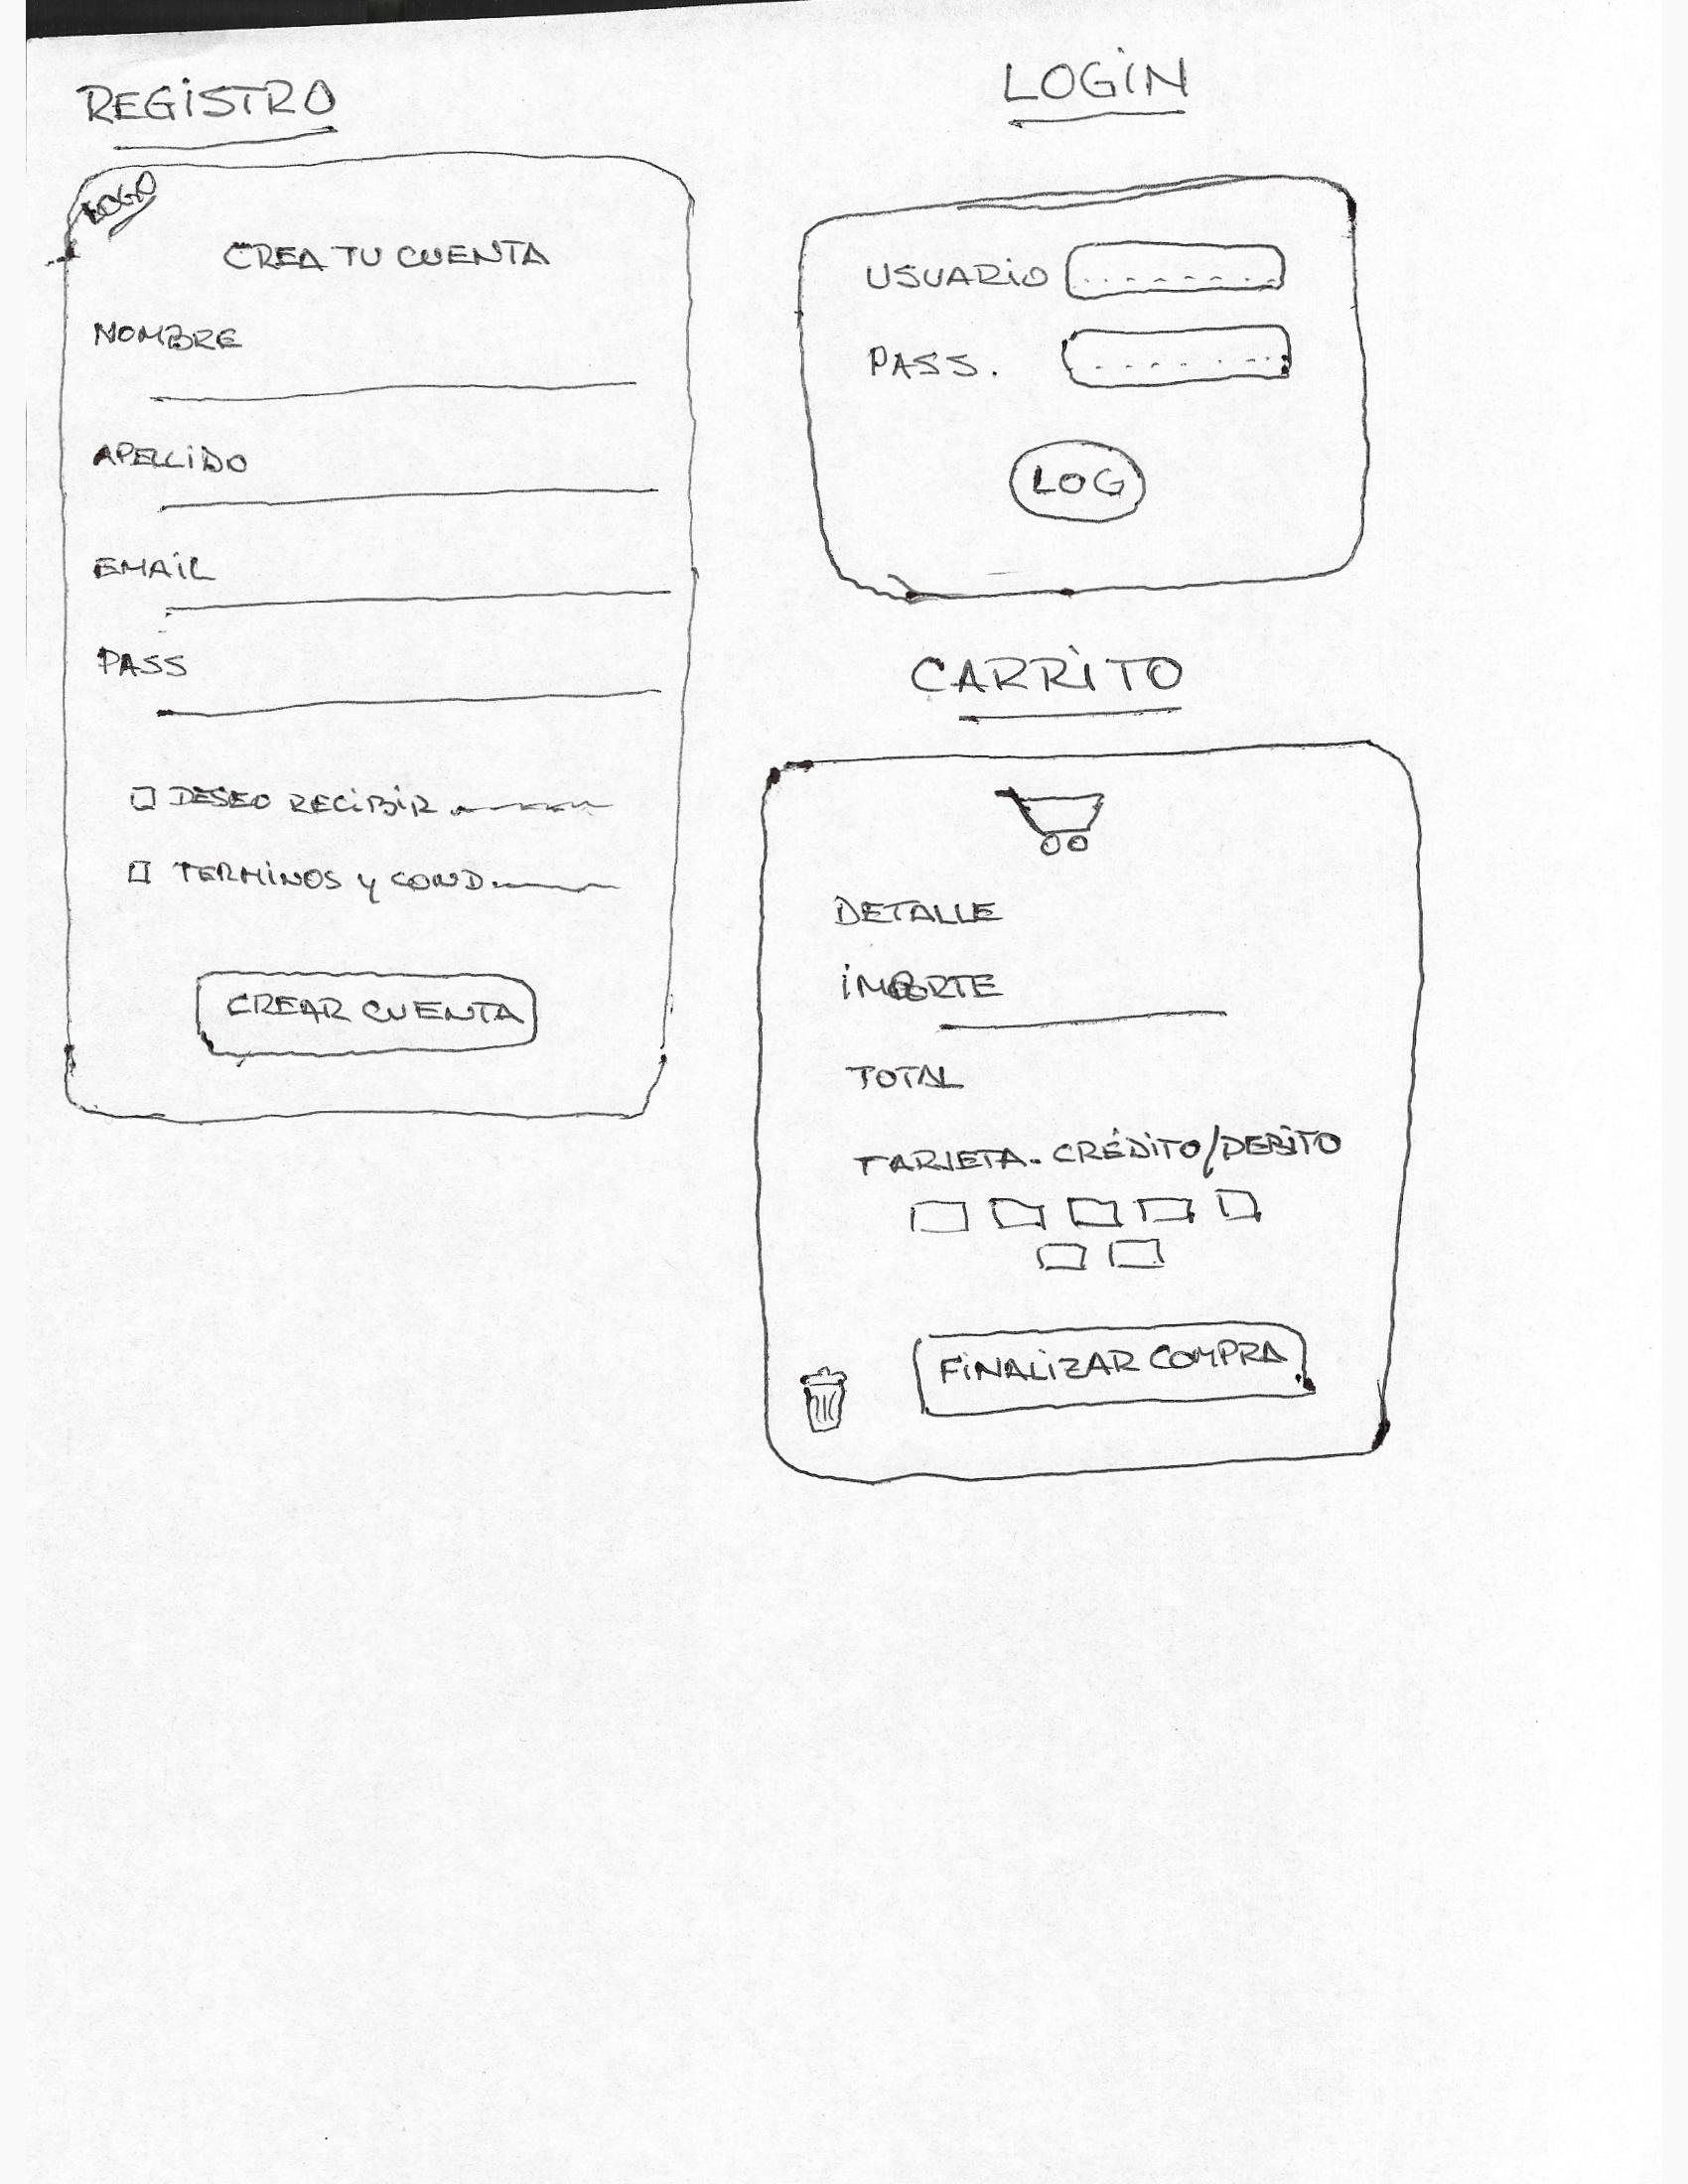 REGISTRO
LOGO
CREA TU CUENTA
NOMBRE
APELLIDO
EMAIL
PASS
DESEO RECIBIR
TERMINOS y COND.
CREAR CUENTA
LOGIN
USUARIO
PASS.
LOG
CARRITO
DETALLE
IMPORTE
TOTAL
TARJETA. CRÉDITO/DEBITO
FINALIZAR COMPRA